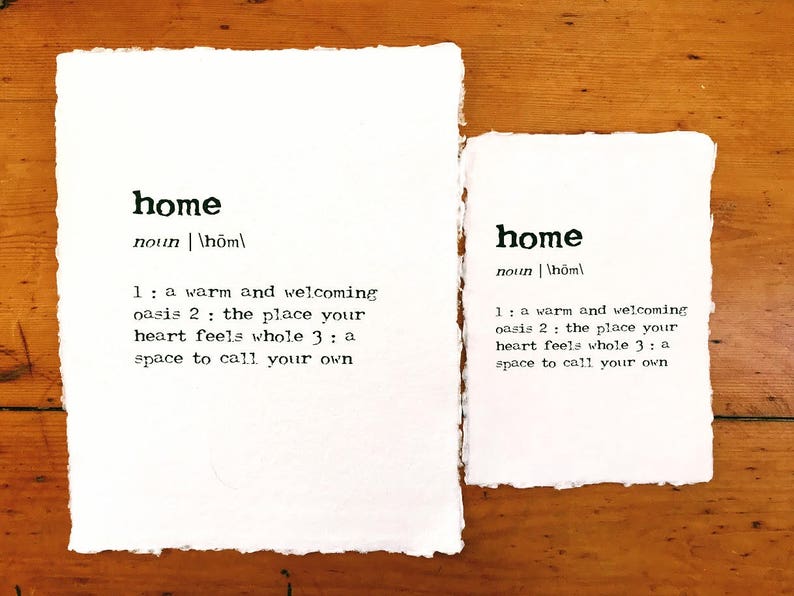 home
noun | \hōm\
1 : a warm and welcoming
oasis 2 : the place your
heart feels whole 3 : a
space to call your own
home
noun | \hōm\
1 : a warm and welcoming
oasis 2 : the place your
heart feels whole 3 : a
space to call your own